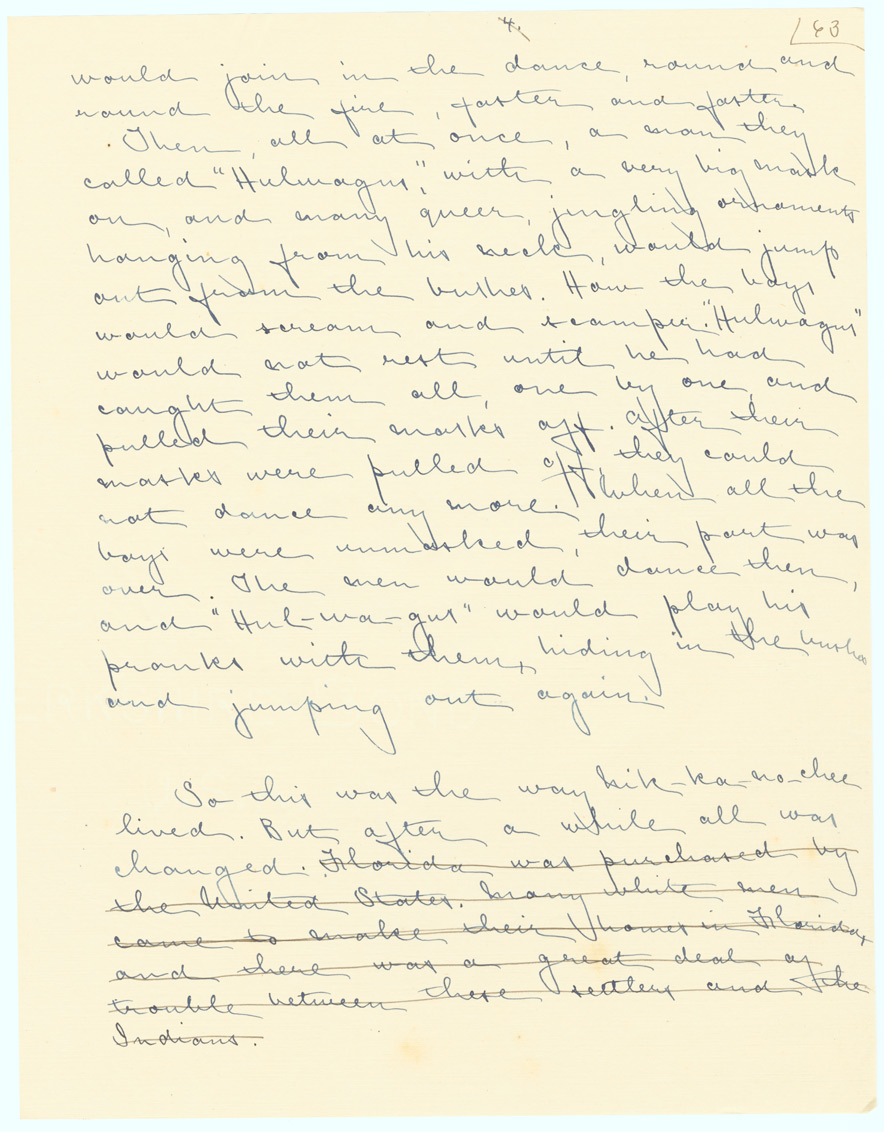 4.
63
would join in the dance, round and
round the fire, faster and faster.
Then, all at once, a man they
called "Hulwagus", with a very big mask
on, and many queer, jingling ornaments
hanging from his neck, would jump
out from the bushes. How the boys
would scream and scamper. "Hulwagus"
would not rest until he had
caught them all, one by one, and
pulled their masks off. After their
masks were pulled off, they could
not dance any more. When all the
boys were unmasked, their part was
over. The men would dance then,
and "Hul-wa-gus" would play his
pranks with them, hiding in the bushes
and jumping out again.
So this was the way Nik-ka-no-chee
lived. But after a while all was
changed. Florida was purchased by
the United States. Many white men
came to make their homes in Florida,
and there was a great deal of
trouble between these settlers and the
Indians.